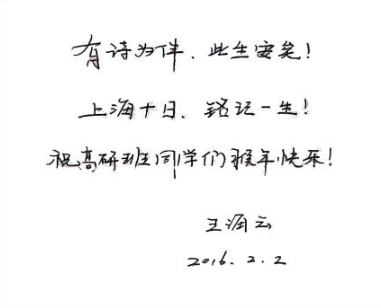 有诗为伴、此生安矣！
上海十日、铭记一生！
祝高研班同学们猴年快乐！
王润云
2016.2.2